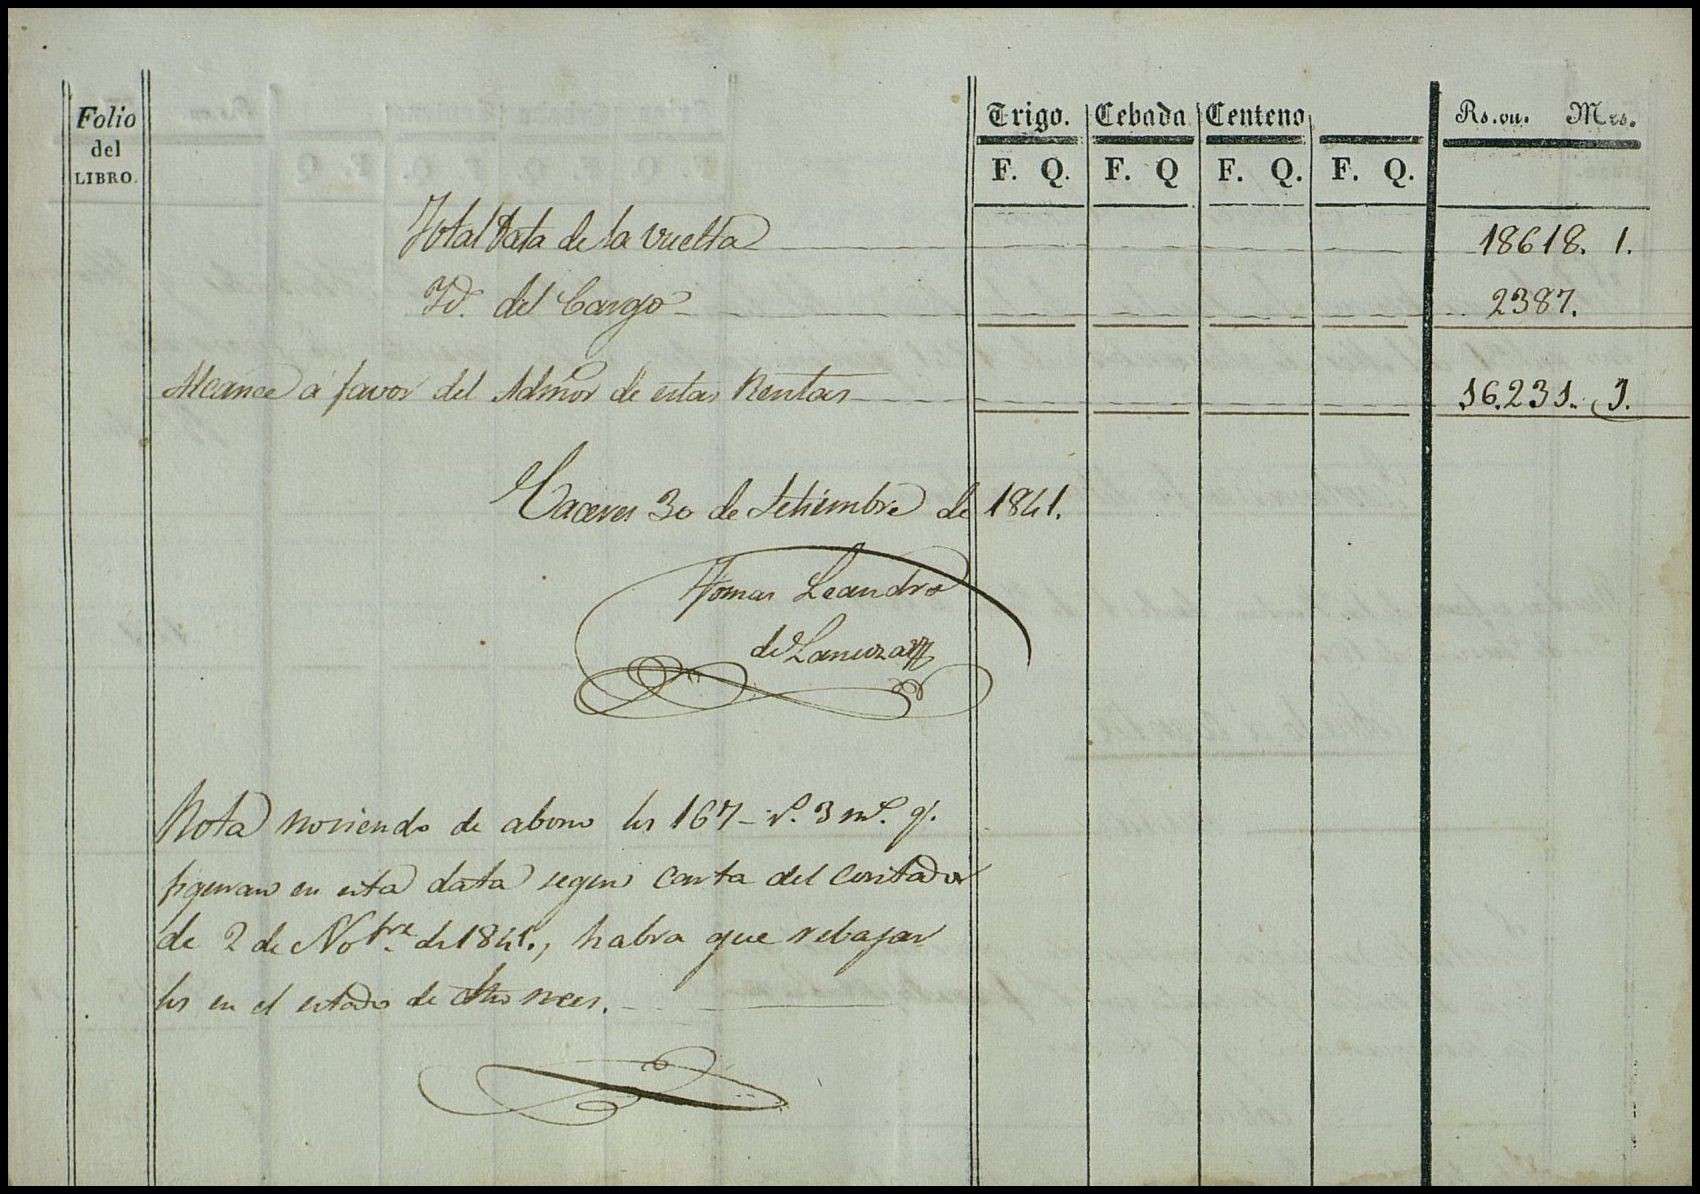 Folio
del
LIBRO.
Trigo. Cebada Centeno Rs.vn. Mrs.
F. Q. F. Q F. Q. F. Q.
Total Data de la vuelta 18618. 1.
Yd. del Cargo 2387.
Alcance a favor del Admor de estas Rentas 16.231. 1.
Caceres 30 de Setiembre de 1841.
Tomas Leandro
de Lanuza
Nota no siendo de abono los 167 r.s 3 m.s q.
figuran en esta data segun carta del contador
de 2 de Nobre de 1841., habra que rebajar
los en el estado de dho mes.